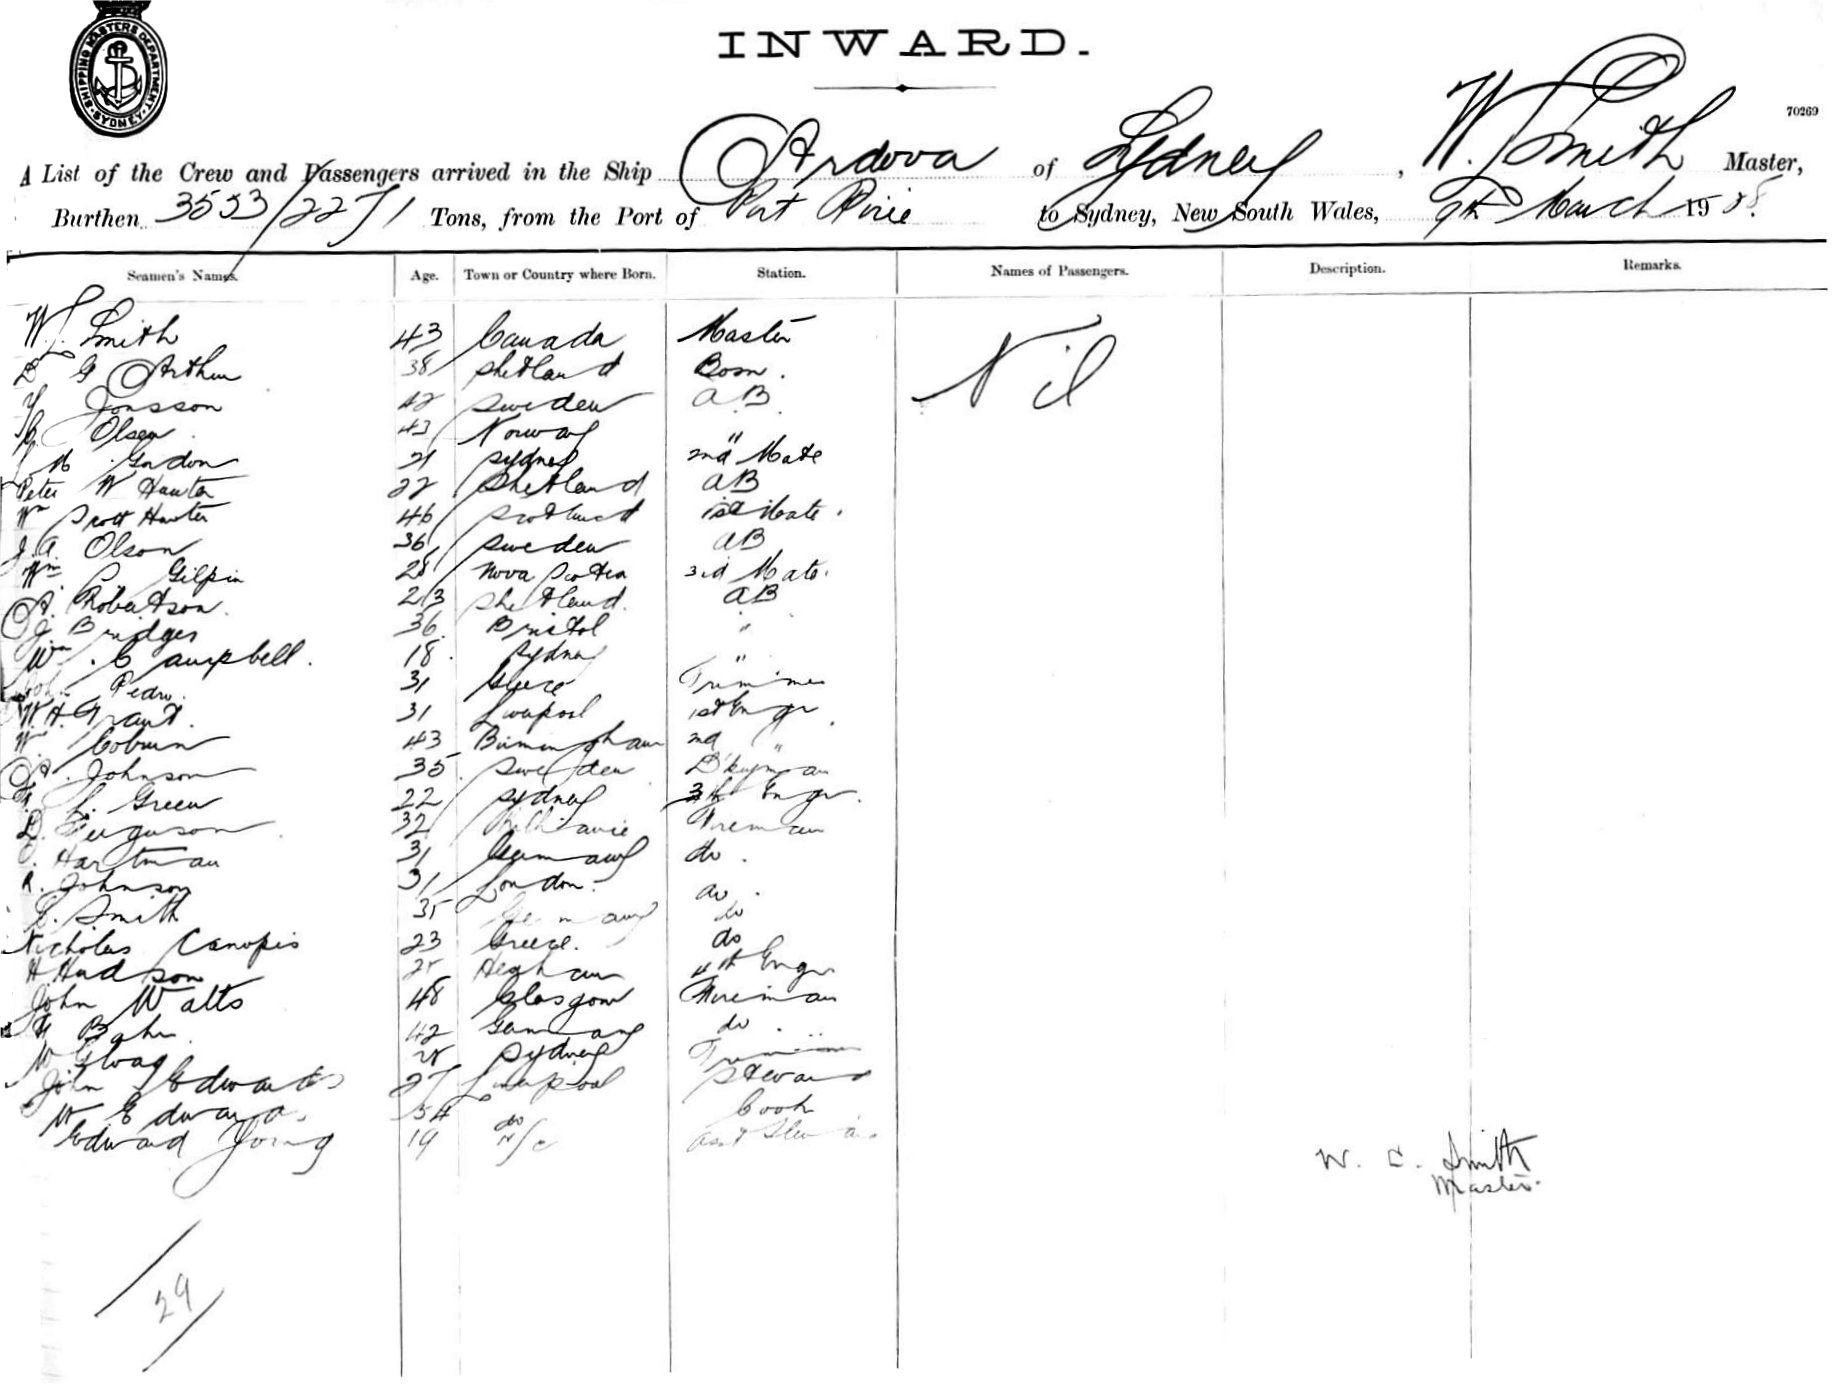 SHIPPING MASTERS DEPARTMENT SYDNEY
INWARD.
70269
A List of the Crew and Passengers arrived in the Ship Ardova of Sydney, W. Smith Master,
Burthen 3553/2271 Tons, from the Port of Port Pirie to Sydney, New South Wales, 9th March 1908.
Seamen's Names. Age. Town or Country where Born. Station. Names of Passengers. Description. Remarks.
W. Smith 43 Canada Master Nil
G Arthur 38 Shetland Bosn.
Jonsson 42 Sweden AB
Olsen 43 Norway "
M Gordon 21 Sydney 2nd Mate
Peter W Hunter 22 Shetland AB
Wm Scott Hunter 46 Scotland 1st Mate.
J. A. Olson 36 Sweden AB
Wm Gilpin 28 Nova Scotia 3rd Mate.
A. Robertson. 23 Shetland. AB
J. Bridges 36. Bristol "
Wm. Campbell. 18. Sydney "
Pedro. 31 Greece Trimmer
W. H. Grant. 31 Liverpool 1st Engr.
Wm Coburn 43 Birmingham 2nd "
A. Johnson 35. Sweden D'kyman
L. Green 22 Sydney 3rd Engr.
D. Ferguson 32 Fireman
Hartman 31 Germany do.
R. Johnson 31 London. do.
E. Smith 35 Germany do
Nicholas Canopis 23 Greece. do
H. Hudson Higham 4th Engr
John Watts 48 Glasgow Fireman
Bahr 42 Germany do.
28 Sydney Trimmer
John Edwards 27 Liverpool Steward
W Edwards. 54 do Cook
Edward Young 19 N/C asst Steward.
W. C. Smith
Master.
29